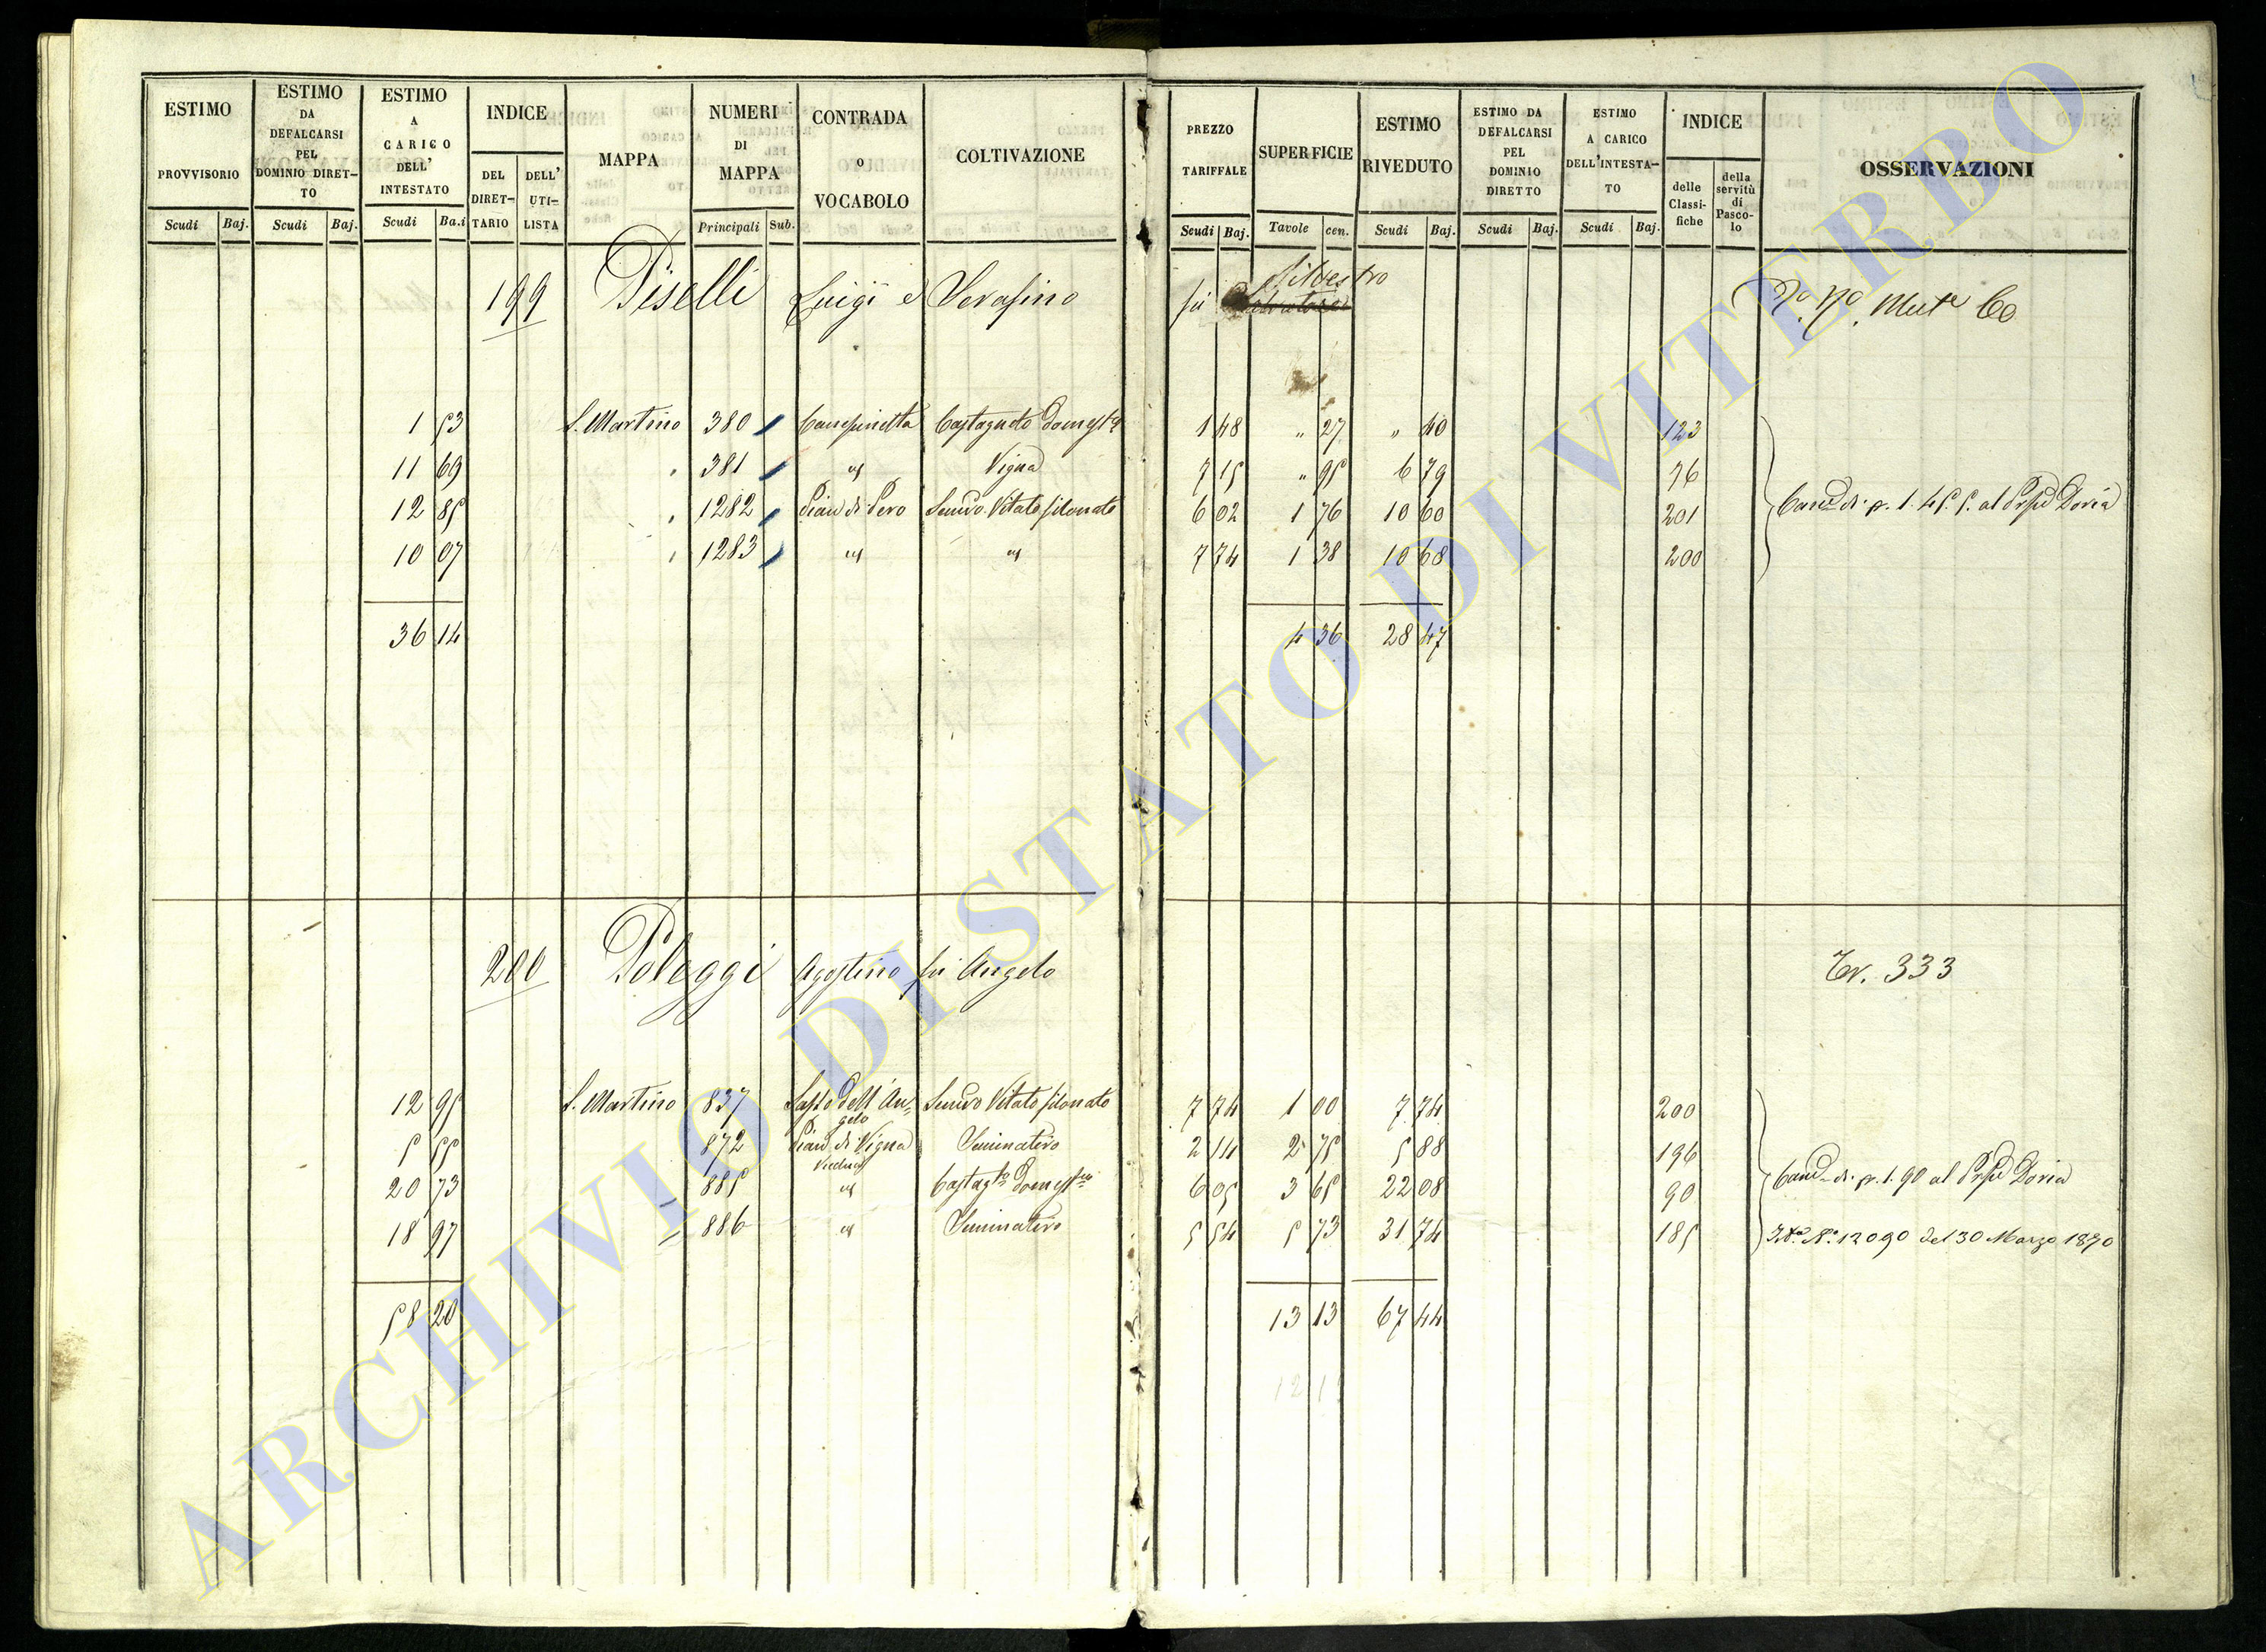 ESTIMO PROVVISORIO Scudi Baj.
ESTIMO DA DEFALCARSI PEL DOMINIO DIRET-TO Scudi Baj.
ESTIMO A CARICO DELL' INTESTATO Scudi Ba.i
INDICE DEL DIRET-TARIO DELL' UTI-LISTA
MAPPA
NUMERI DI MAPPA Principali Sub.
CONTRADA o VOCABOLO
COLTIVAZIONE
PREZZO TARIFFALE Scudi Baj.
SUPERFICIE Tavole cen.
ESTIMO RIVEDUTO Scudi Baj.
ESTIMO DA DEFALCARSI PEL DOMINIO DIRETTO Scudi Baj.
ESTIMO A CARICO DELL'INTESTA-TO Scudi Baj.
INDICE delle Classi-fiche della servitù di Pasco-lo
OSSERVAZIONI
199 Piselli Luigi e Serafino fu Silvestro
1 53 S. Martino 380 Campinetta Castagneto Domest.o 1 48 " 27 " 40 123
11 69 " 381 id Vigna 7 15 " 95 6 79 76
12 85 " 1282 Pian di Pero Semivo Vitato filonato 6 02 1 76 10 60 201 di p. 1. 45. 5. al Doria
10 07 " 1283 id id 7 74 1 38 10 68 200
36 14 4 36 28 47
200 Poleggi Agostino fu Angelo 333
12 95 S. Martino 837 Sasso dell'An=gelo Semivo Vitato filonato 7 74 1 00 7 74 200
5 55 872 Pian di Vigna Seminativo 2 14 2 75 5 88 196
20 73 885 id Castag.to Domest.co 6 05 3 65 22 08 90 di p. 1. 90 al Doria
18 97 886 id Seminativo 5 54 5 73 31 74 185 N.° 12090 del 30 Marzo 1870
58 20 13 13 67 44
ARCHIVIO DI STATO DI VITERBO